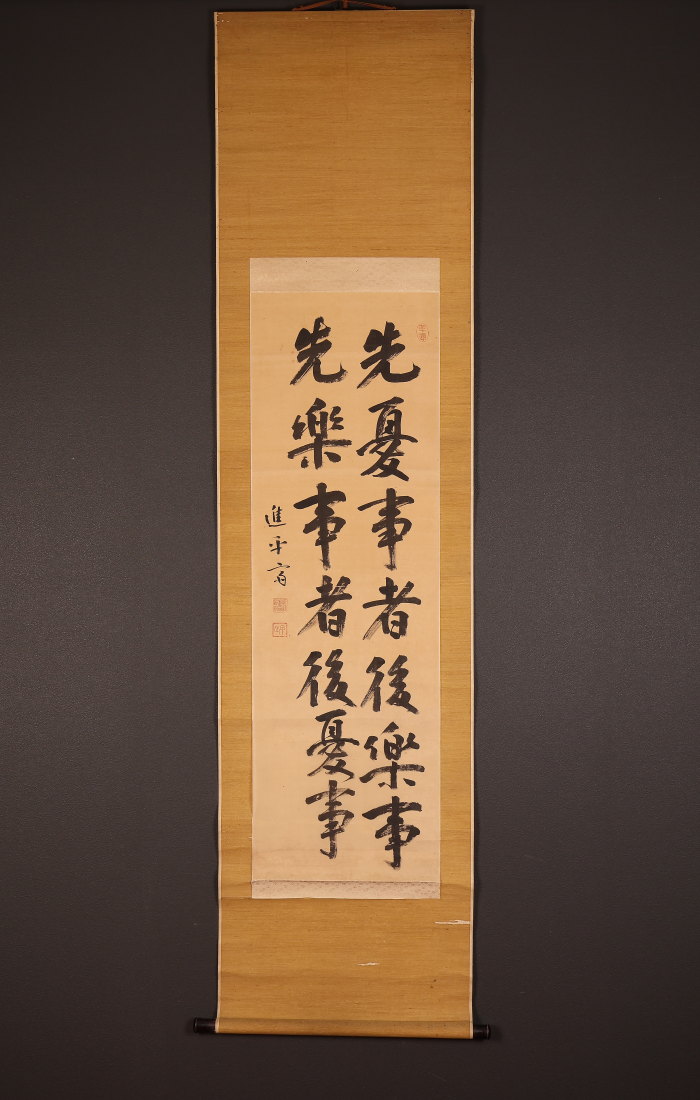 先憂事者後樂事
先樂事者後憂事
進平